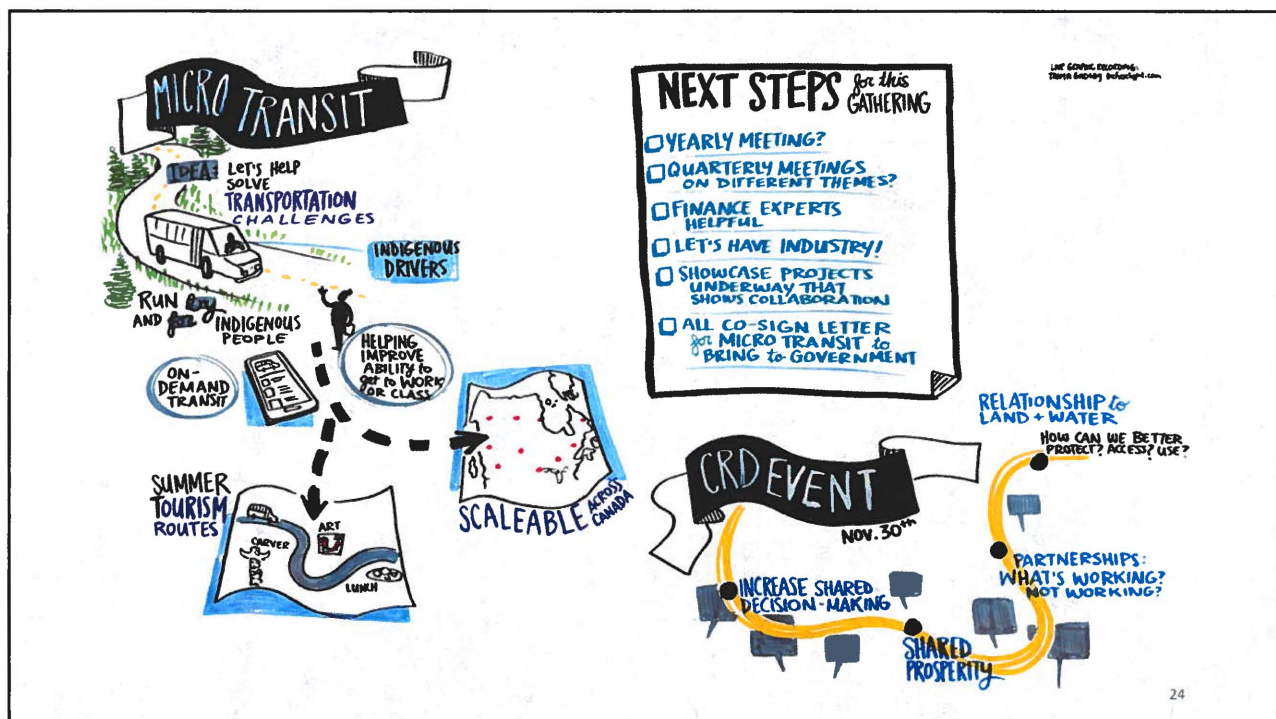 MICRO TRANSIT
IDEA: LET'S HELP
SOLVE
TRANSPORTATION
CHALLENGES
INDIGENOUS
DRIVERS
RUN by
AND for INDIGENOUS
PEOPLE
ON-
DEMAND
TRANSIT
HELPING
IMPROVE
ABILITY to
get to WORK
OR CLASS
SUMMER
TOURISM
ROUTES
CARVER
ART
LUNCH
SCALEABLE ACROSS
CANADA
NEXT STEPS for this
GATHERING
YEARLY MEETING?
QUARTERLY MEETINGS
ON DIFFERENT THEMES?
FINANCE EXPERTS
HELPFUL
LET'S HAVE INDUSTRY!
SHOWCASE PROJECTS
UNDERWAY THAT
SHOWS COLLABORATION
ALL CO-SIGN LETTER
for MICRO TRANSIT to
BRING to GOVERNMENT
LIVE GRAPHIC RECORDING:
CRD EVENT
NOV. 30th
INCREASE SHARED
DECISION-MAKING
SHARED
PROSPERITY
PARTNERSHIPS:
WHAT'S WORKING?
NOT WORKING?
RELATIONSHIP to
LAND + WATER
HOW CAN WE BETTER
PROTECT? ACCESS? USE?
24